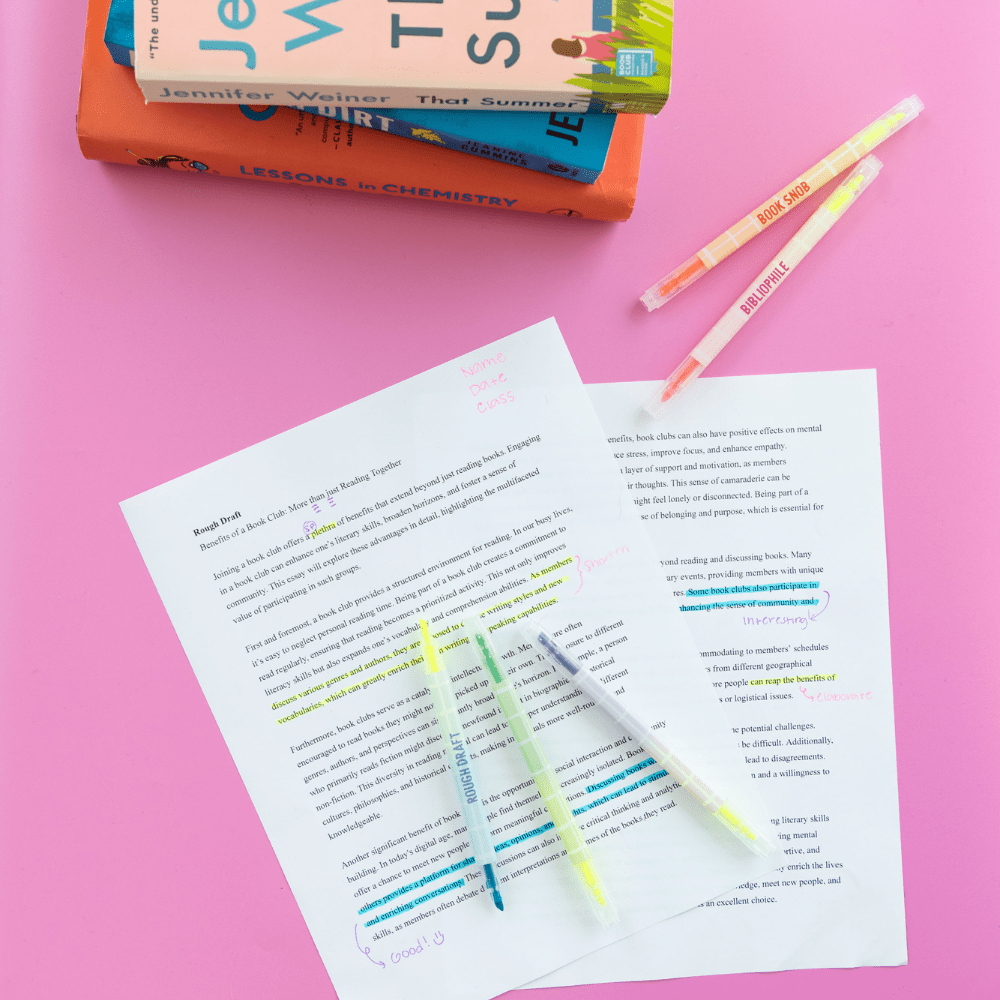 "The und
Je
W
Th
Su
BOOK CLUB
Jennifer Weiner That Summer
DIRT
JE
JEANINE CUMMINS
LESSONS in CHEMISTRY
BOOK SNOB
BIBLIOPHILE
Name
Date
Class
Rough Draft
Benefits of a Book Club: More than just Reading Together
sp
Joining a book club offers a plethra of benefits that extend beyond just reading books. Engaging
in a book club can enhance one's literary skills, broaden horizons, and foster a sense of
community. This essay will explore these advantages in detail, highlighting the multifaceted
value of participating in such groups.
First and foremost, a book club provides a structured environment for reading. In our busy lives,
it's easy to neglect personal reading time. Being part of a book club creates a commitment to
read regularly, ensuring that reading becomes a prioritized activity. This not only improves
literacy skills but also expands one's vocabulary and comprehension abilities. As members
discuss various genres and authors, they are exposed to writing styles and new
vocabularies, which can greatly enrich their writing peaking capabilities.
shorten
Furthermore, book clubs serve as a cataly intellec wth. Me are often
encouraged to read books they might no picked up eir own. T osure to different
genres, authors, and perspectives can si ntly broad 's horizon. F mple, a person
who primarily reads fiction might disc newfound i t in biograph storical
non-fiction. This diversity in reading can lead to per understandi fferent
cultures, philosophies, and historical making in als more well-rou nd
knowledgeable.
Another significant benefit of book is the opportuni social interaction and c nity
building. In today's digital age, ma ple find themsel creasingly isolated. Boo
offer a chance to meet new people orm meaningful c tions. Discussing books w
others provides a platform for sha eas, opinions, an hts, which can lead to stimu
and enriching conversations. The cussions can also i e critical thinking and analytic
skills, as members often debate d nt interpretations mes of the books they read.
Good!
ROUGH DRAFT
enefits, book clubs can also have positive effects on mental
ce stress, improve focus, and enhance empathy.
layer of support and motivation, as members
ir thoughts. This sense of camaraderie can be
ight feel lonely or disconnected. Being part of a
se of belonging and purpose, which is essential for
yond reading and discussing books. Many
ary events, providing members with unique
res. Some book clubs also participate in
hancing the sense of community and
interesting
mmodating to members' schedules
rs from different geographical
re people can reap the benefits of
s or logistical issues.
elaborate
e potential challenges.
be difficult. Additionally,
lead to disagreements.
n and a willingness to
ng literary skills
ring mental
ertive, and
y enrich the lives
edge, meet new people, and
s an excellent choice.